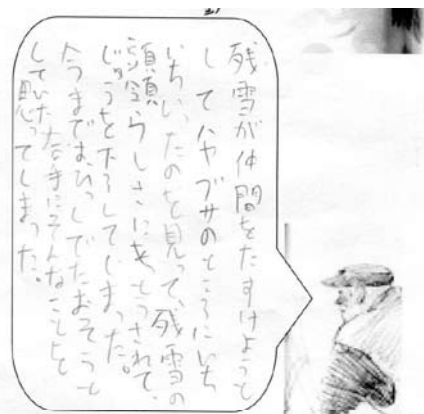 残雪が仲間をたすけようと
してハヤブサのところにいち
いちいったのを見って、残雪の
頭領らしさにあっとうされて、
じゅうを下ろしてしまった。
今までは、ひっしでたおそうと
していた手にそんなことを
思ってしまった。